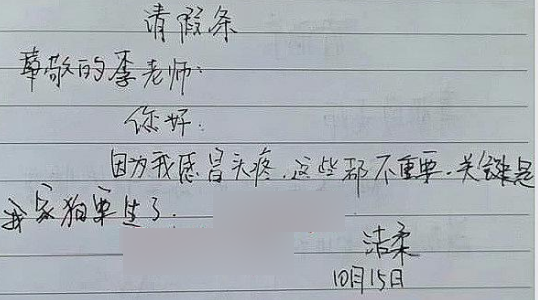 请假条
尊敬的李老师：
你好：
因为我感冒头疼.这些都不重要.关键是
我家狗要生了.
洁柔
10月15日